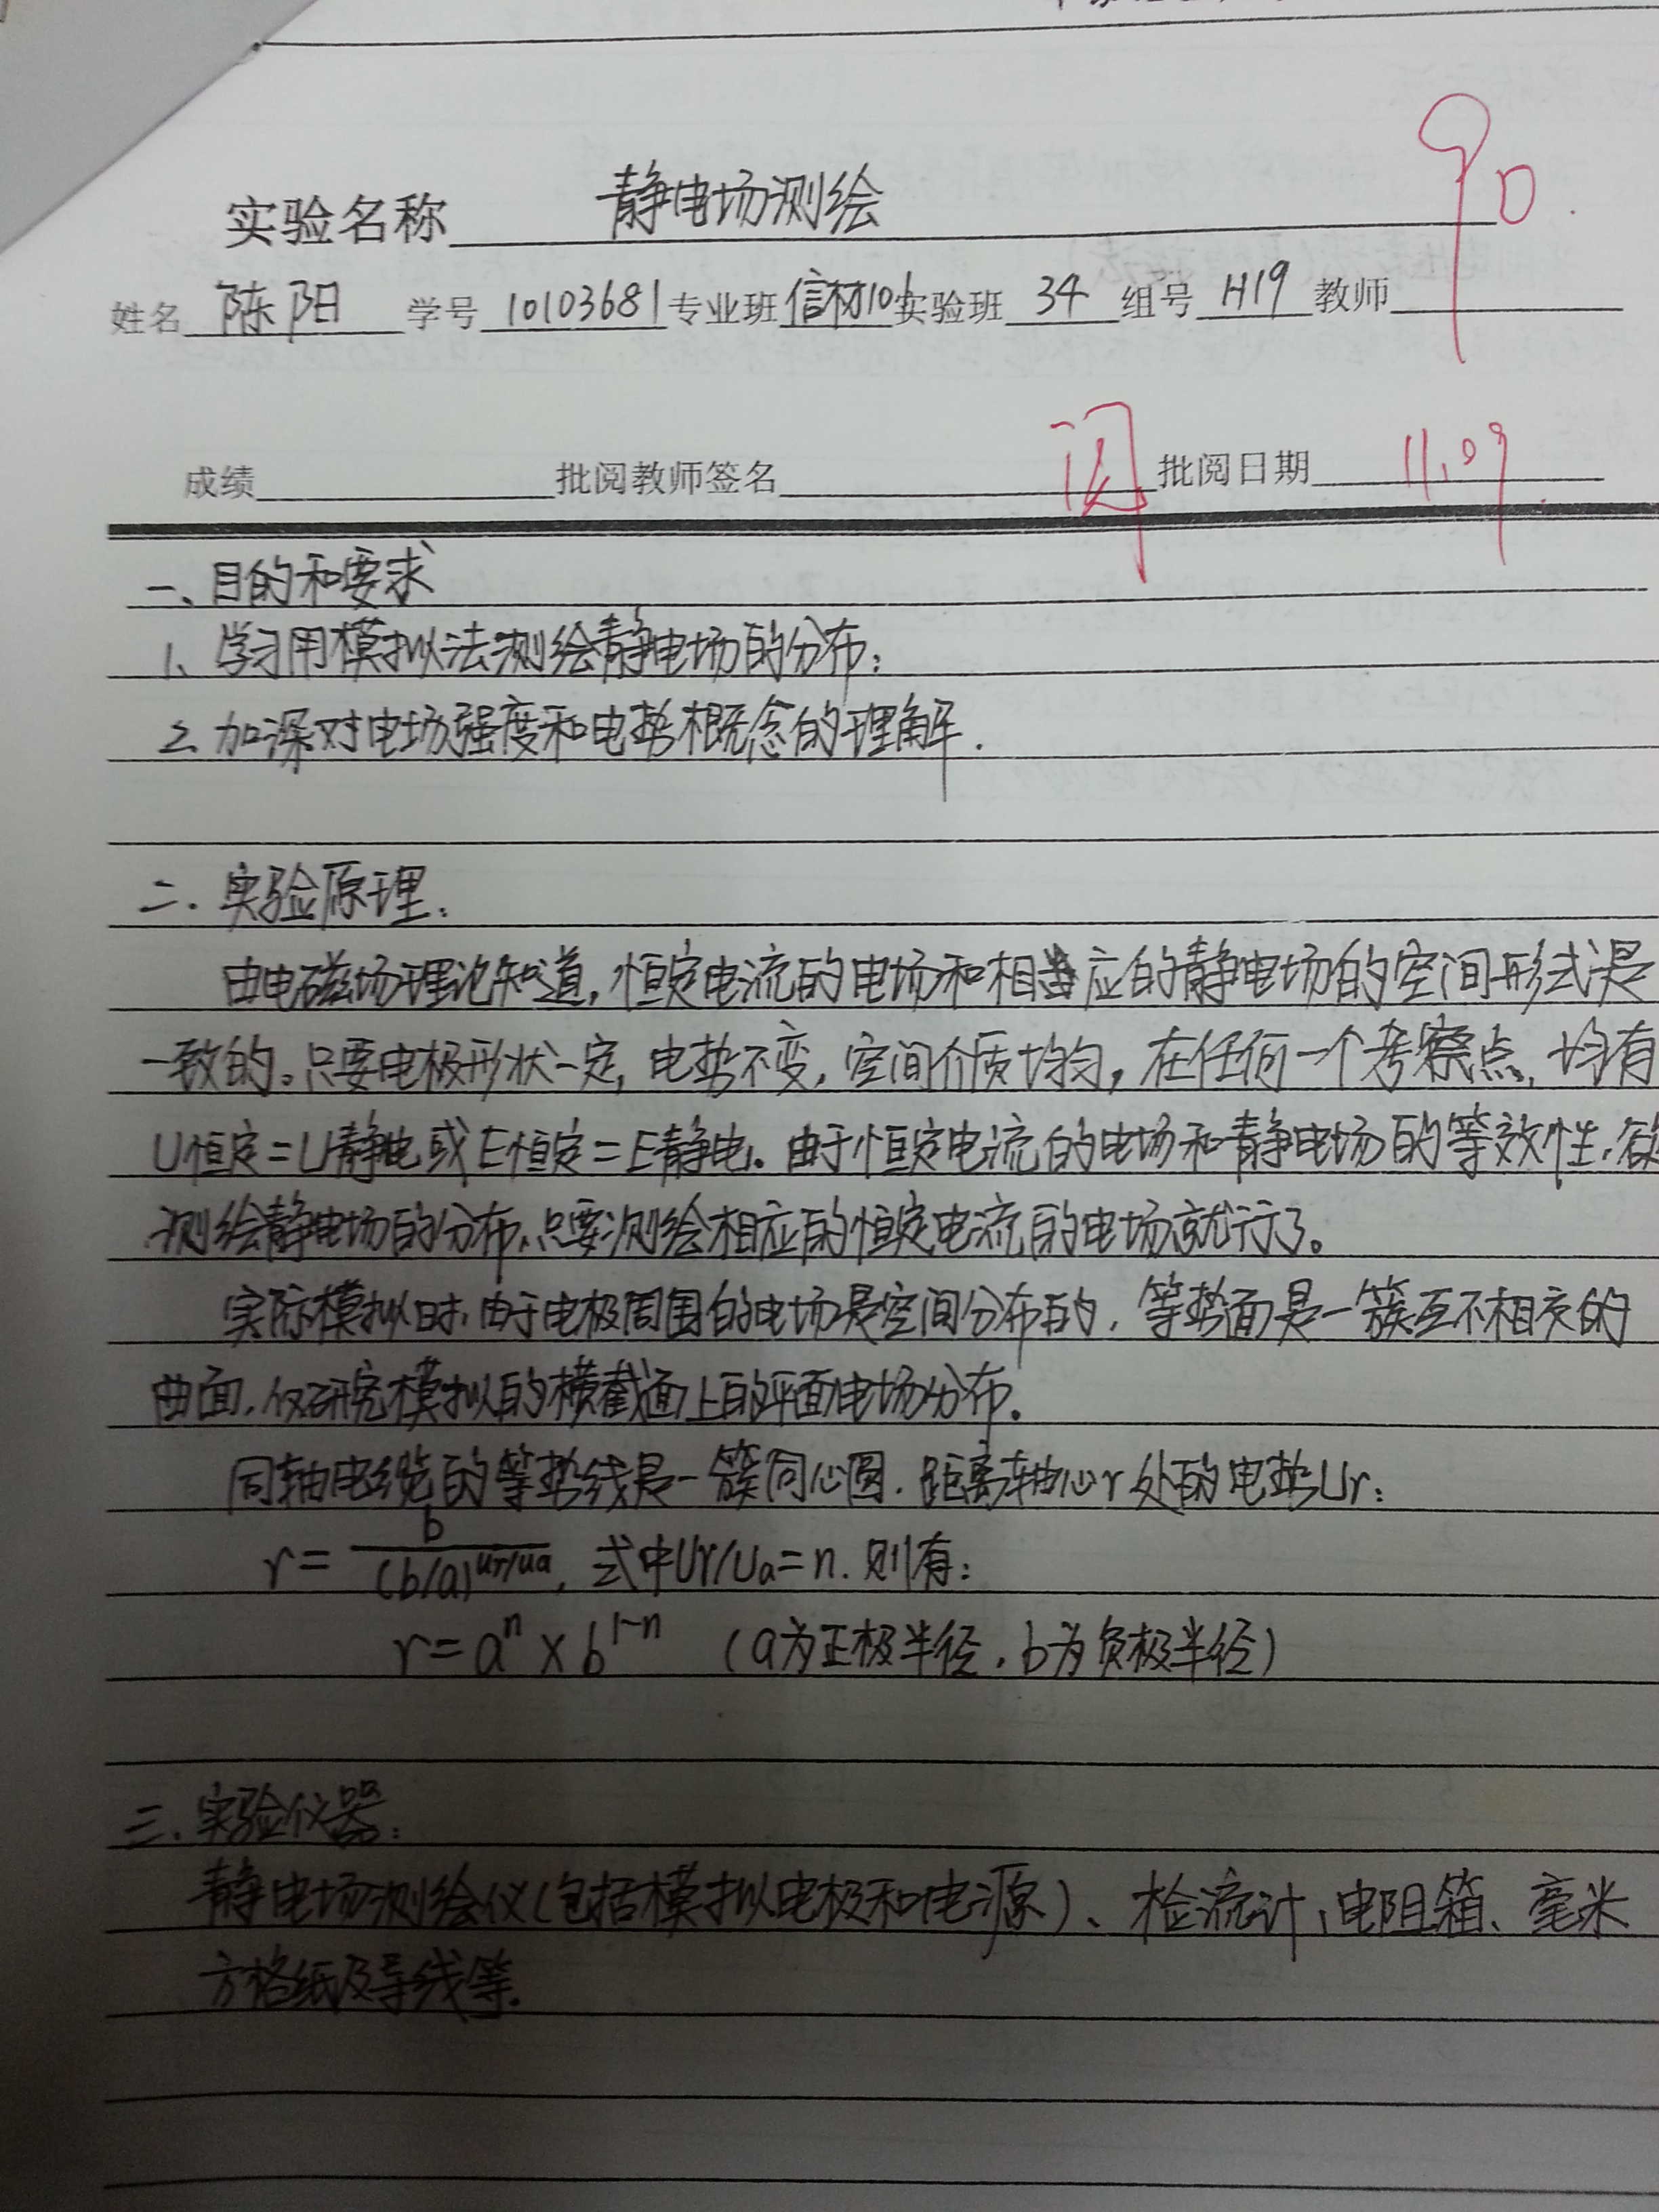 90.
实验名称 静电场测绘
姓名 陈阳 学号 10103681 专业班 信材101 实验班 34 组号 H19 教师
成绩 批阅教师签名 阅 批阅日期 11.09
一、目的和要求
1、学习用模拟法测绘静电场的分布;
2、加深对电场强度和电势概念的理解.
二.实验原理:
由电磁场理论知道,恒定电流的电场和相应的静电场的空间形式是
一致的。只要电极形状一定,电势不变,空间介质均匀,在任何一个考察点,均有
U恒定=U静电或E恒定=E静电。由于恒定电流的电场和静电场的等效性,欲
测绘静电场的分布,只要测绘相应的恒定电流的电场就行了。
实际模拟时,由于电极周围的电场是空间分布的,等势面是一簇互不相交的
曲面,仅研究模拟的横截面上的平面电场分布。
同轴电缆的等势线是一簇同心圆.距离轴心r处的电势Ur:
r= b/(b/a)^(ur/ua),式中Ur/Ua=n.则有:
r=a^n×b^(1-n) (a为正极半径,b为负极半径)
三、实验仪器:
静电场测绘仪(包括模拟电极和电源)、检流计、电阻箱、毫米
方格纸及导线等.